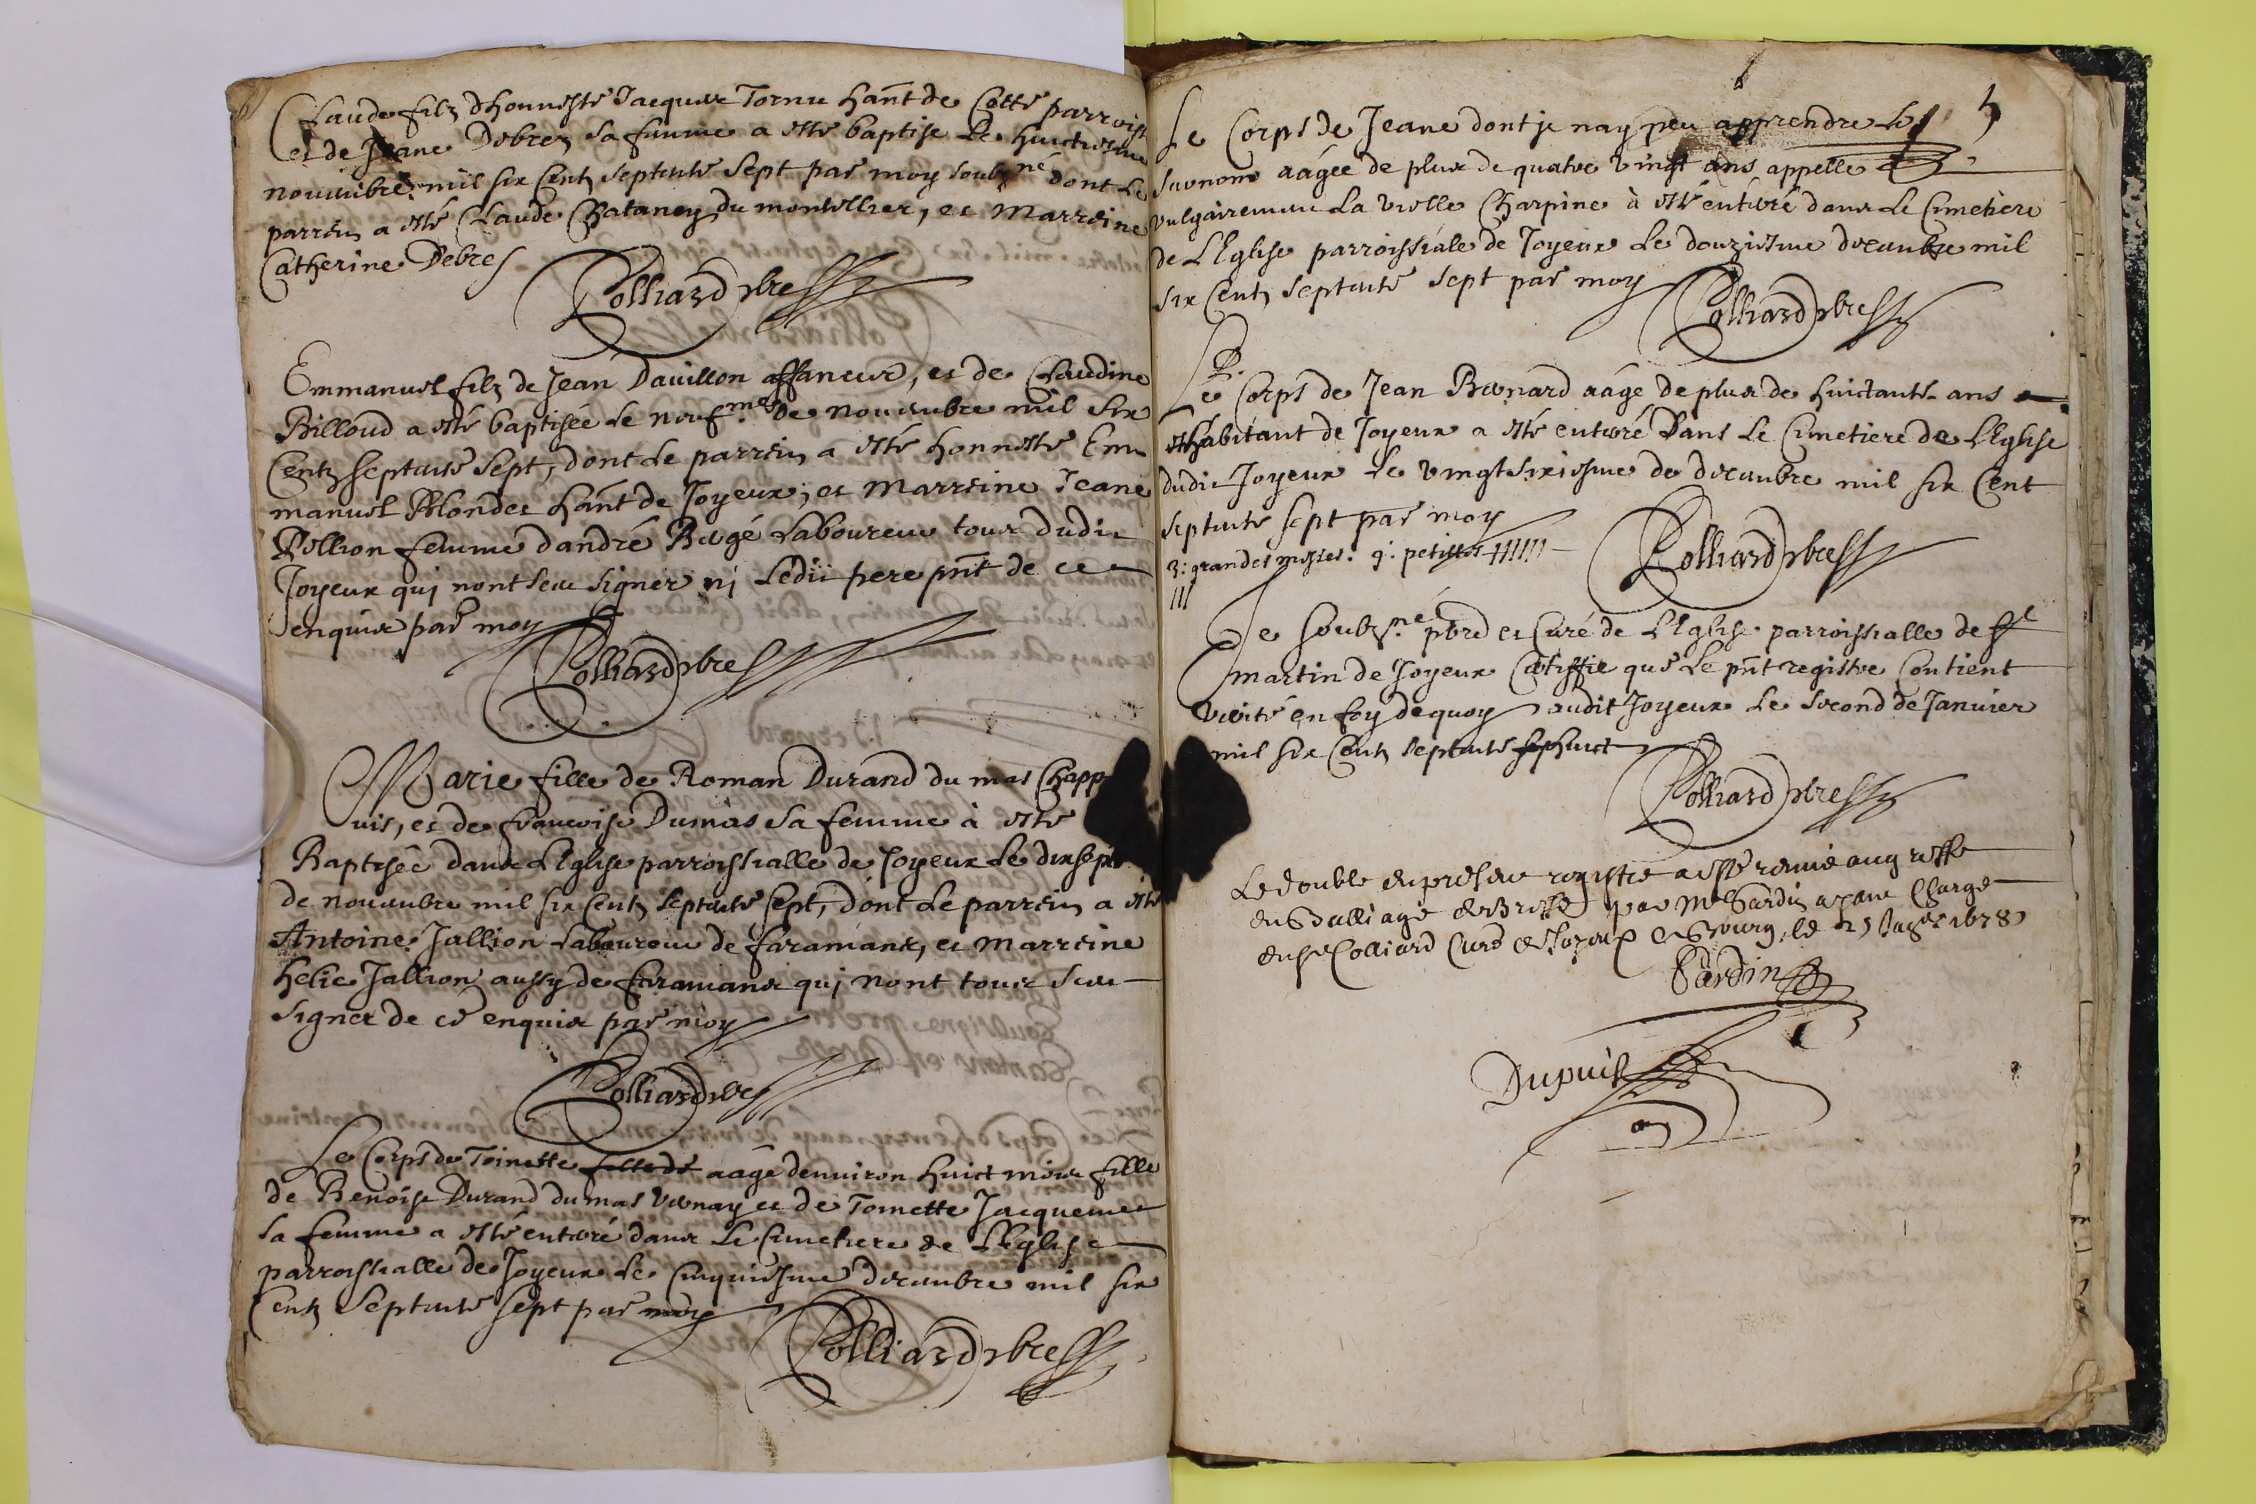 Claude filz dhonneste Jacques Tornu hant de Cette parroisse
et de Jeane Debrez sa femme a esté baptisé le huictiesme
novembre mil six Centz septente sept par moy soubzné dont le
parrein a esté Claude Chataney du montellier, et Marreine
Catherine Debres
Colliard pbre
Emmanuel filz de Jean Dauillon affaneur, et de Claudine
Billoud a esté baptisée le neufme de novembre mil six
Centz septente sept, dont le parrein a esté honneste Em
manuel Blondet hant de Joyeux, et Marreine Jeane
Pellion femme dandré Bergé laboureur tous dudit
Joyeux qui nont seu signer ni ledit pere pnt de ce
enquis par moy
Colliard pbre
Marie fille de Roman Durand du mas Chapp
uis, et de francoise Dumas sa femme à esté
Baptisée dans l'Eglise parroissialle de Joyeux le dixsept
de novembre mil six Centz septente sept, dont le parrein a esté
Antoine Jallion laboureur de faramans, et Marreine
helie Jallion aussy de faramans qui nont tous seu
signer de ce enquis par moy
Colliard pbre
Le Corps de Toinette fille de aagé denviron huict mois fille
de Benoist Durand du mas Vernay et de Toinette Jacquemet
sa femme a esté enterré dans le Cimetiere de l'Eglise
parroissialle de Joyeux le Cinquiesme decembre mil six
Centz septente sept par moy
Colliard pbre
5
Le Corps de Jeane dont je nay peu apprendre le
surnom aagée de plus de quatre vingt ans appelle
vulgairement la vielle Charpine à esté enterré dans le Cimetiere
de l'Eglise parroissiale de Joyeux le douziesme decembre mil
six Centz septente sept par moy
Colliard pbre
Le Corps de Jean Bernard aagé de plus de huictante ans
habitant de Joyeux a esté enterré Dans le Cimetiere de l'Eglise
dudit Joyeux le vingtsixiesme de decembre mil six Cent
septente sept par moy
3: grandes messes. 9: petittes
Colliard pbre
Je soubzné pbre et Curé de l'Eglise parroissialle de St
martin de Joyeux Certiffie que le pnt registre Contient
verité en foy dequoy audit Joyeux le second de Janvier
mil six Centz septente huict
Colliard pbre
Le double du present registre a esté remis au greffe
du Balliage de Bresse par Me Sardin ayant Charge
du sr Colliard Curé de Joyeux a Bourg le 1678
Sardin
Dupuis